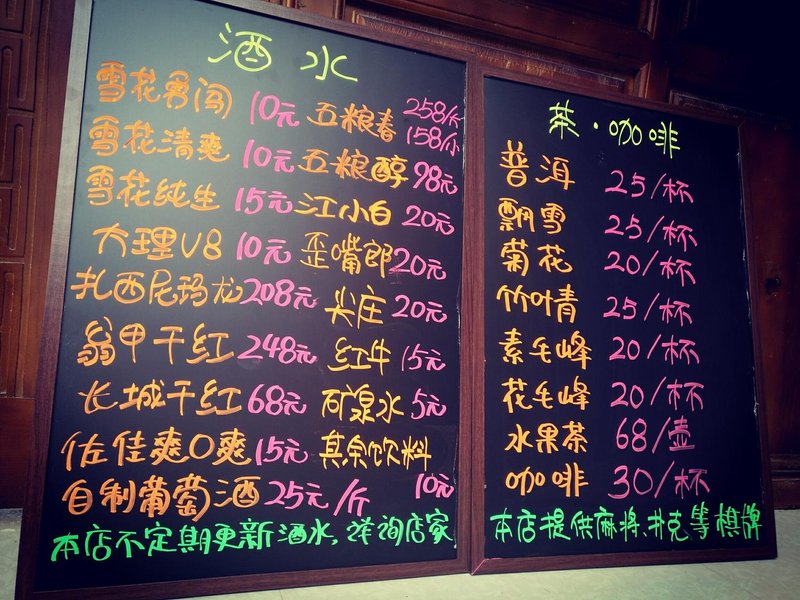 酒水
雪花勇闯 10元 五粮春 258/大 158/小
雪花清爽 10元 五粮醇 98元
雪花纯生 15元 江小白 20元
大理V8 10元 歪嘴郎 20元
扎西尼玛龙 208元 尖庄 20元
翁甲干红 248元 红牛 15元
长城干红 68元 矿泉水 5元
佐佳爽O爽 15元 其余饮料
自制葡萄酒 25元/斤 10元
本店不定期更新酒水,详询店家
茶·咖啡
普洱 25/杯
飘雪 25/杯
菊花 20/杯
竹叶青 25/杯
素毛峰 20/杯
花毛峰 20/杯
水果茶 68/壶
咖啡 30/杯
本店提供麻将、扑克等棋牌